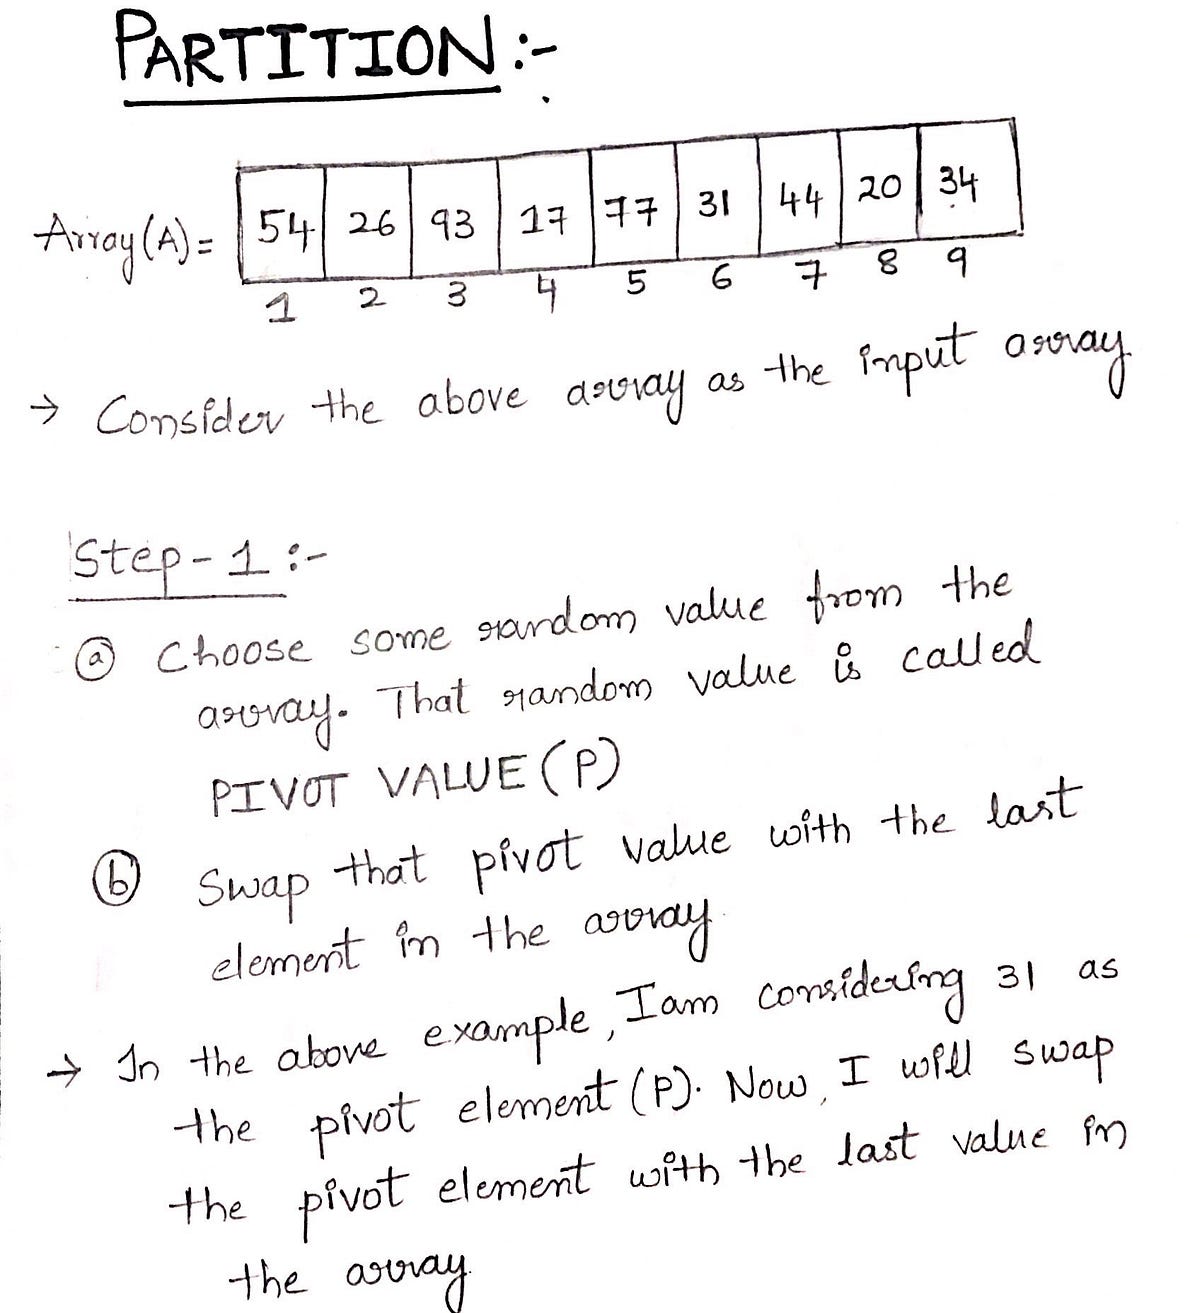 PARTITION :-
Array(A) = 54 26 93 17 77 31 44 20 34
1 2 3 4 5 6 7 8 9
→ Consider the above array as the input array
Step-1 :-
ⓐ Choose some random value from the
array. That random value is called
PIVOT VALUE (P)
ⓑ Swap that pivot value with the last
element in the array
→ In the above example, I am considering 31 as
the pivot element (P). Now, I will swap
the pivot element with the last value in
the array